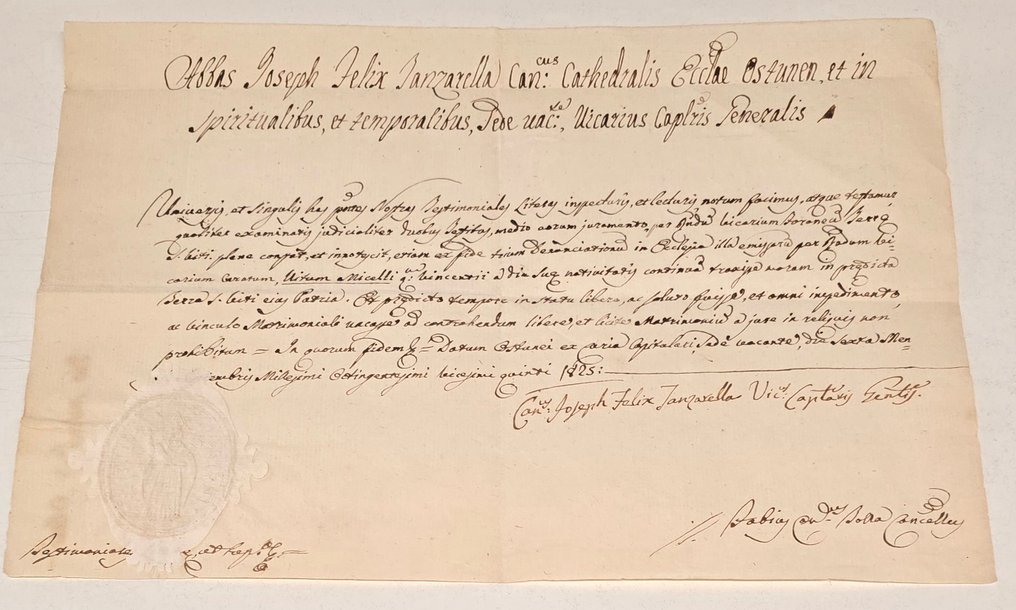 Abbas Joseph Felix Tanzarella Can:cus Cathedralis Ecclae Ostunen, et in
spiritualibus, et temporalibus, Sede vac:te, Vicarius Caplris Generalis
Universis, et singulis has pntes Nostras Testimoniales Literas inspecturis, et lecturis notum facimus, atque testamur
qualiter examinatis judicialiter duobus Testibus, medio eorum juramento, per Rndum Vicarium Foraneum Terrę
S. Viti plane constat, et innotuit, etiam ex fide trium Denunciationum in Ecclesia illa emissarum per Rndum Vi-
carium Curatum, Vitum Micelli q: Vincentii a die suę nativitatis continuam traxisse moram in prędicta
Terra S. Viti ejus Patria. Et prędicto tempore in statu libero, ac soluto fuisse, et omni impedimento,
ac vinculo Matrimoniali vacasse ad contrahendum libere, et licite Matrimonium a jure in reliquis non
prohibitum = In quorum fidem = Datum Ostunei ex Curia Capitulari, Sede vacante, die sexta Men-
embris Millesimi Octingentesimi vicesimi quinti 1825:
Can:cus Joseph Felix Tanzarella Vic:s Caplaris Gnlis.
Fabius Can:cus Cancells
Testimoniales